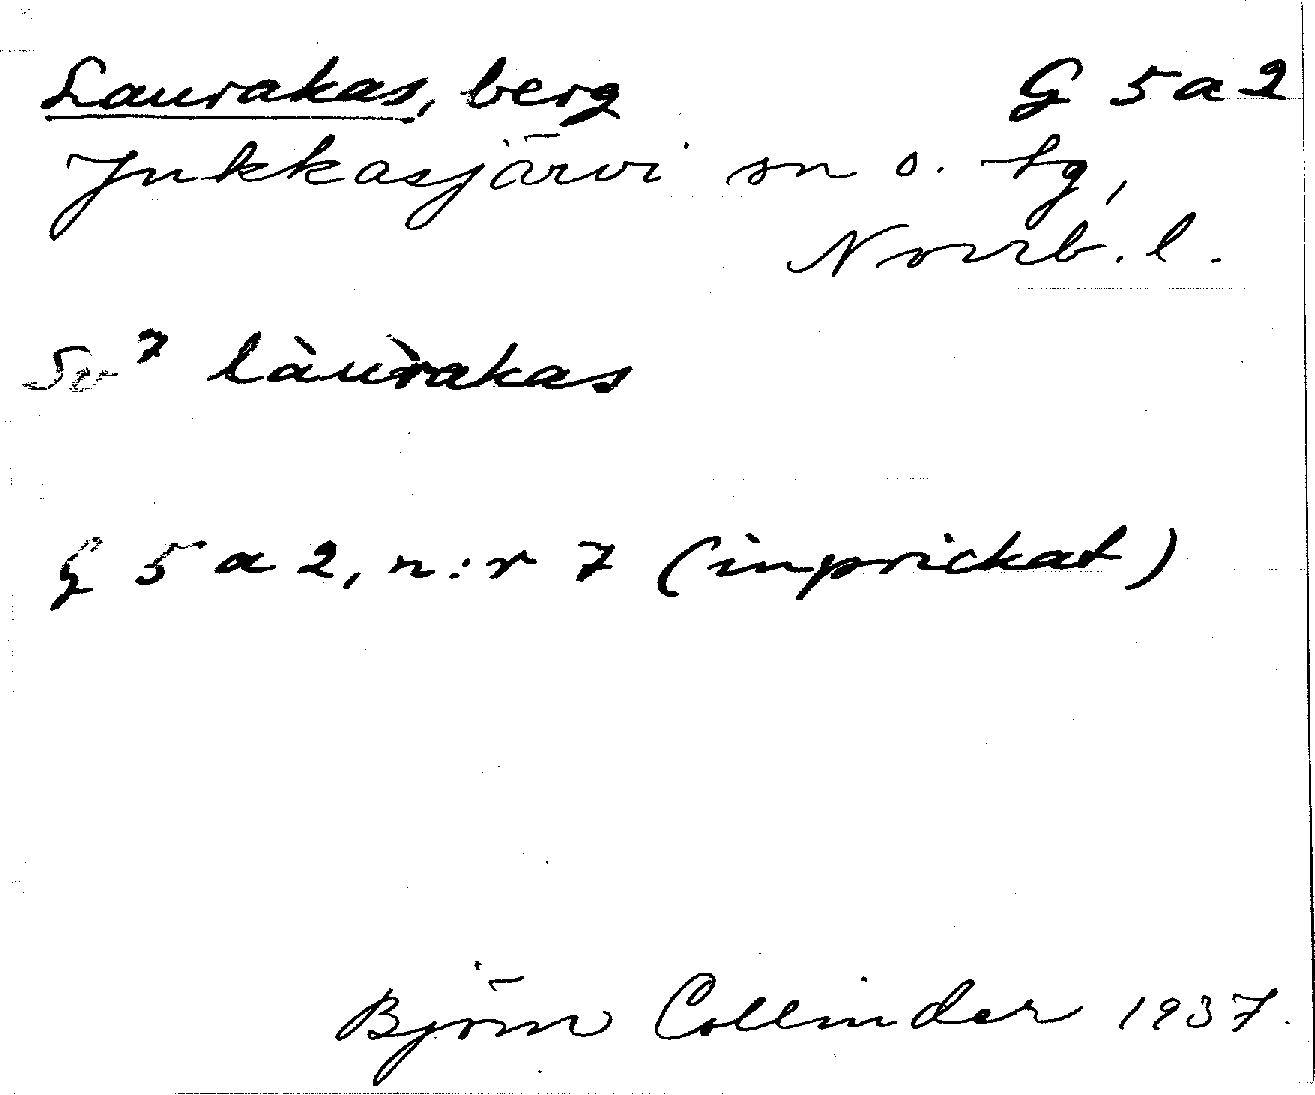 Laurakas, berg G 5 a 2
Jukkasjärvi sn o. tg,
Norrb. l.
Sv⁷ làùrakas
G 5 a 2, n:r 7 (inprickat)
Björn Collinder 1937.